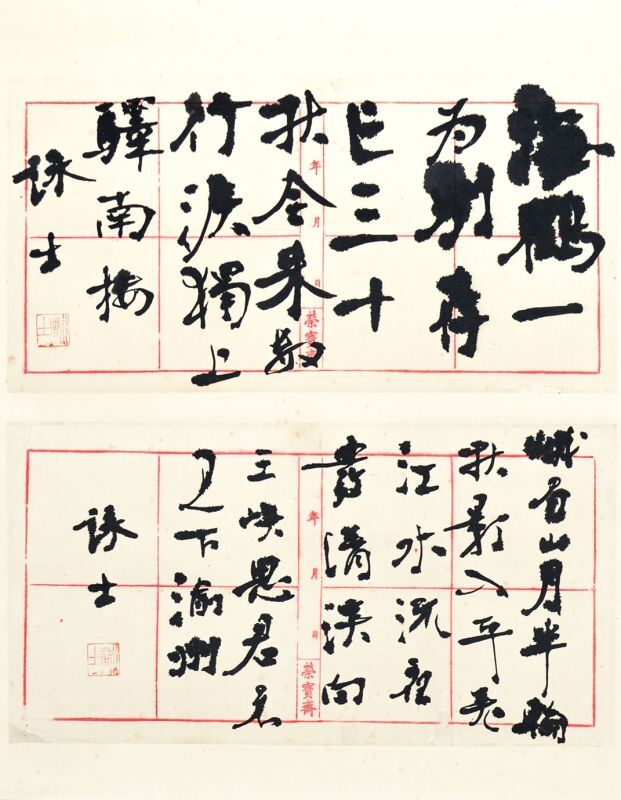 海鶴一
為别存
亡三十
秋今来數
行淚獨上
驛南楼
詠士
年 月 日
榮寶齋
峨眉山月半輪
秋影入平羌
江水流夜
發清溪向
三峽思君不
见下渝州
詠士
年 月 日
榮寶齋